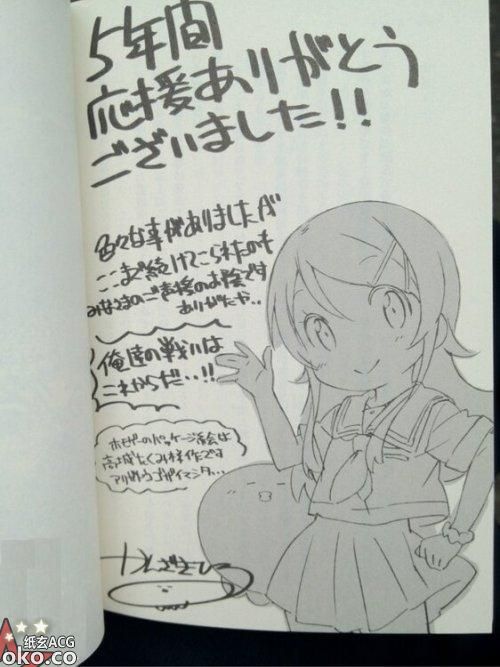 5年間
応援ありがとう
ございました!!
色々な事がありましたが
ここまで続けてこられたのも
みなさまのご声援のお陰です
ありがたや..
俺達の戦いは
これからだ..!!
パッケージ漫画は
様作です
アリガトウゴザイマシタ...
かんざきひろ
纸玄ACG
oko.co